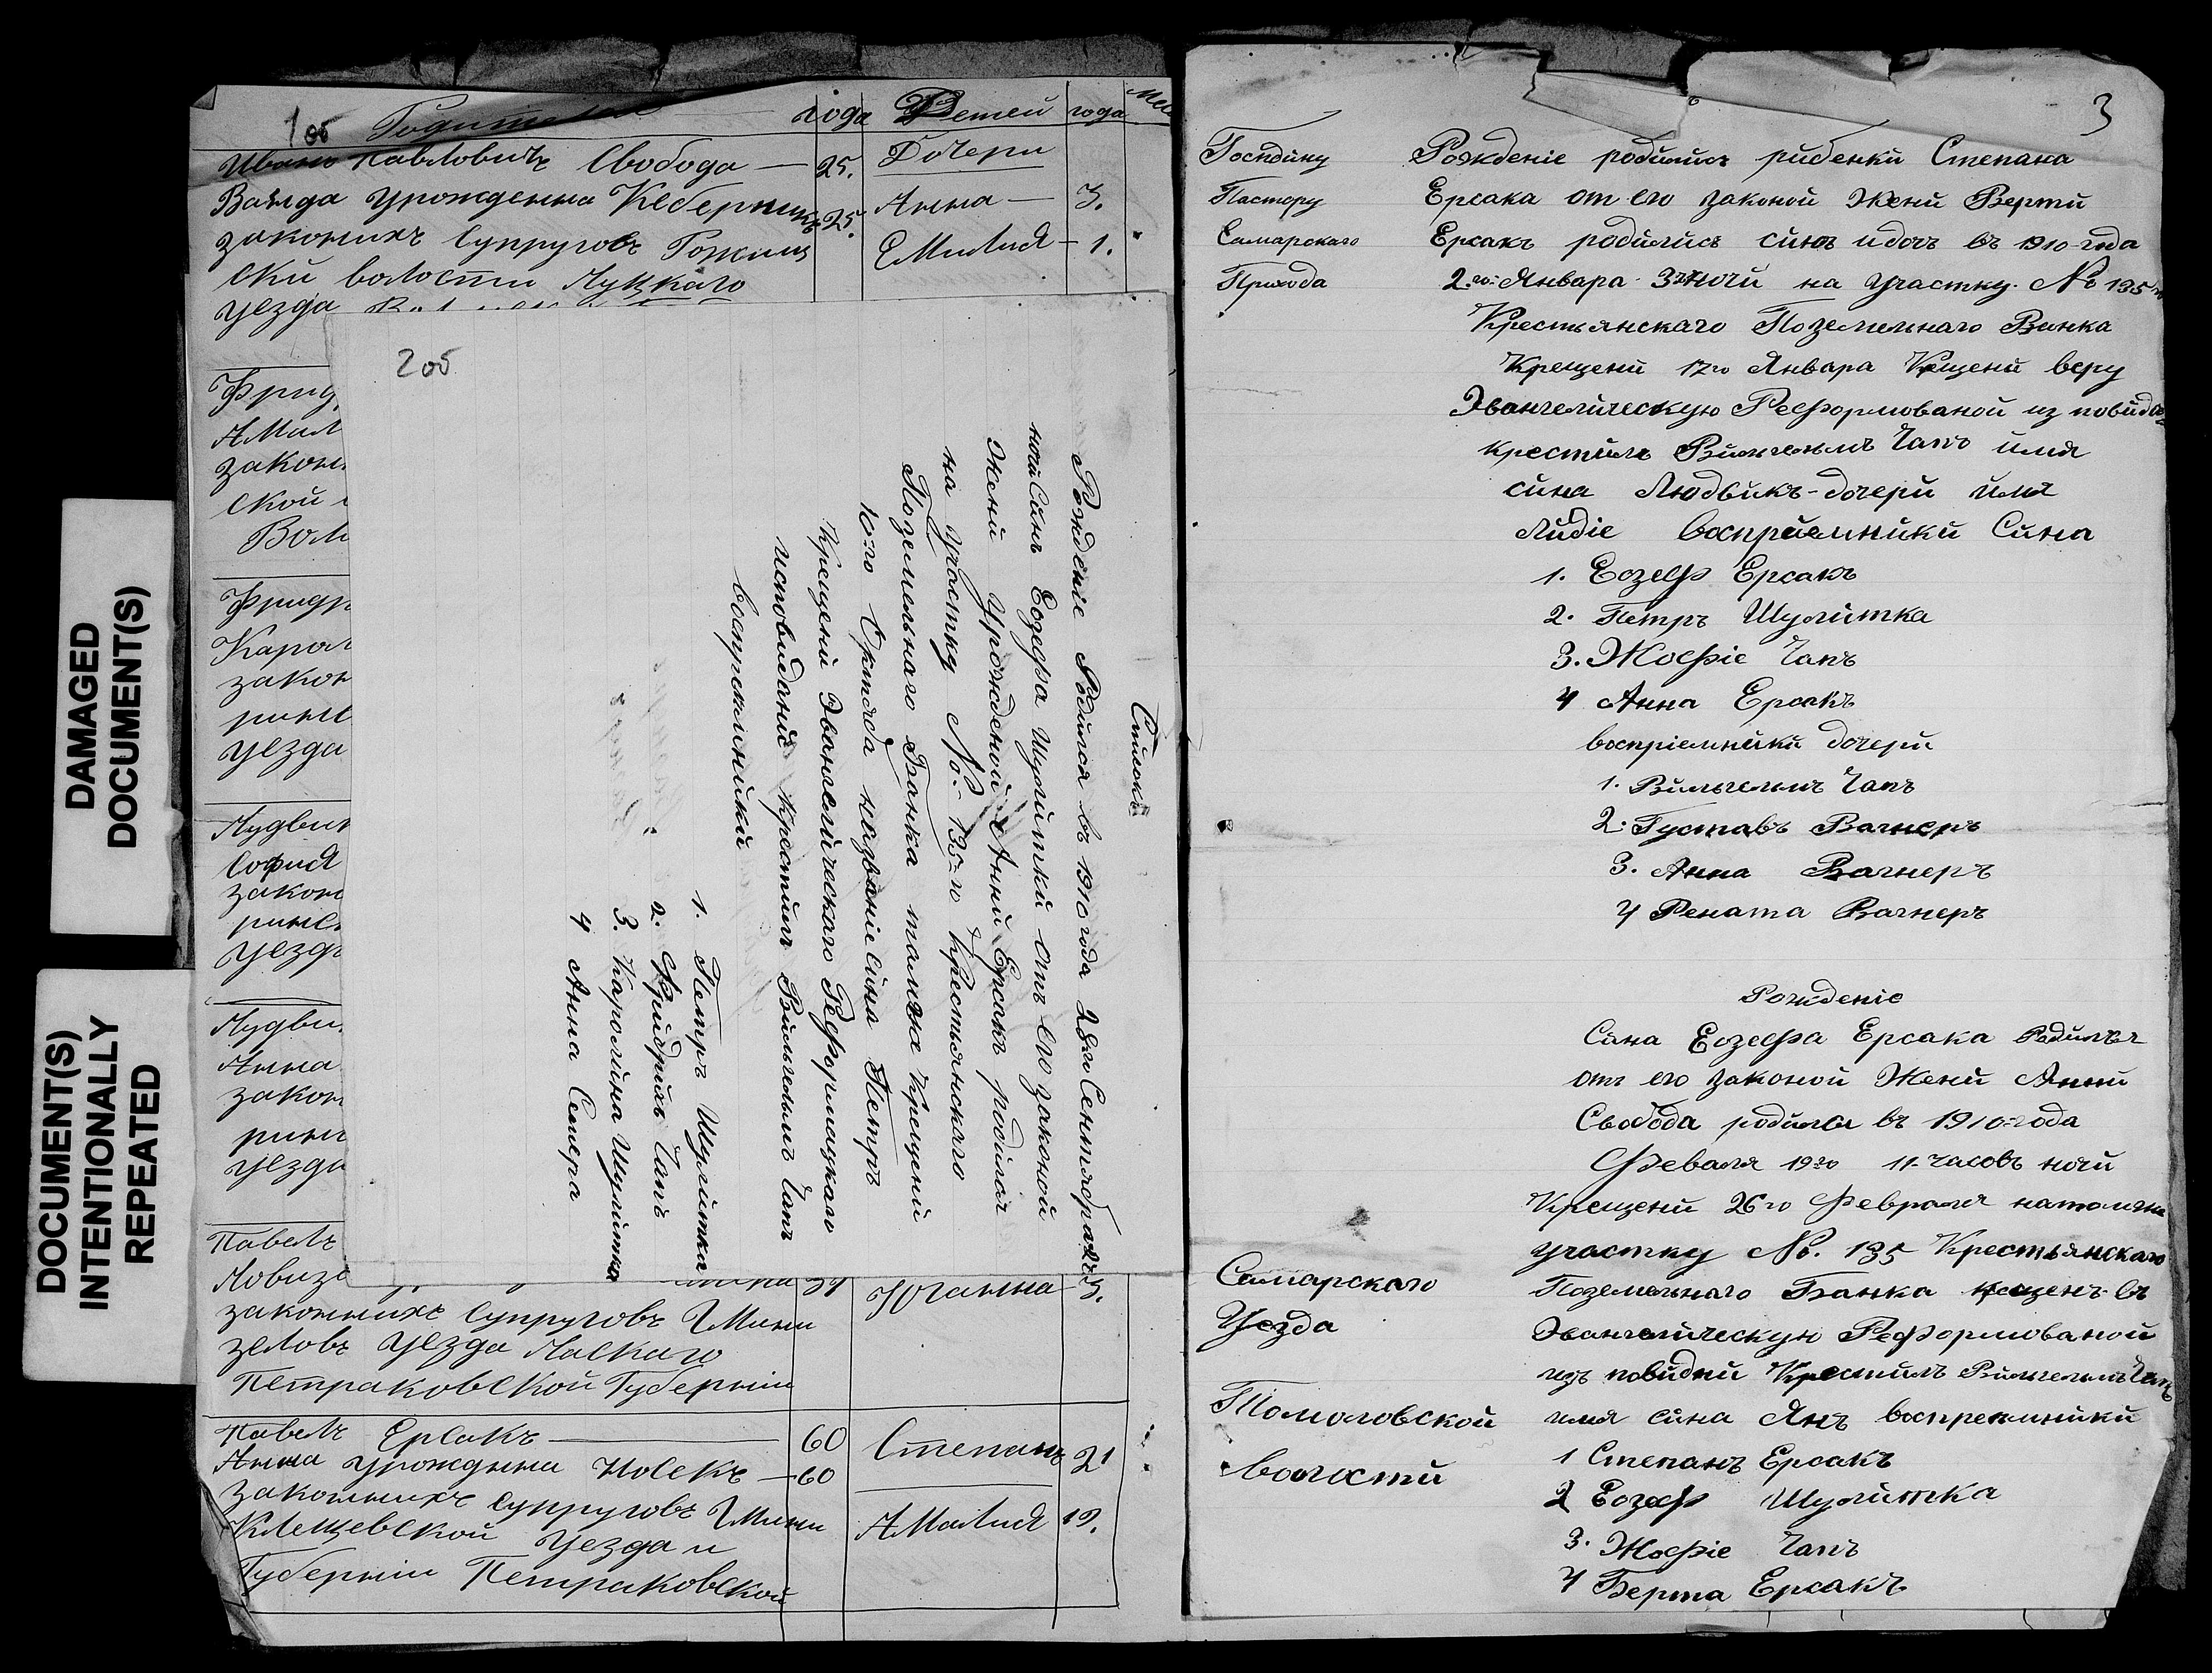 DAMAGED
DOCUMENT(S)
DOCUMENT(S)
INTENTIONALLY
REPEATED
1об
года Детей года
Иванъ Павловичъ Свобода — 25. Дочери
Ванда Урожденна 25. Анна — 3.
законныхъ Супруговъ Емилия — 1.
ски волости Луцкаго
Уезда
Фрид
Амал
закон
ской
Вол
Фридр
Карол
закон
рин
Уезда
Лудвиг
София
закон
рин
Уезд
Лудви
Анна
закон
рин
Уезда
Павелъ
Юганна 3.
законныхъ Супруговъ Гмини
зеловъ Уезда Ласкаго
Петраковской Губерніи
Павелъ Ерсакъ — 60 Степанъ 21
Анна урожденна Носекъ — 60
законныхъ Супруговъ Гмини Амалия 19.
Клещевской Уезда и
Губерніи Петраковской
2об
Списокъ
Рожденіе Родился въ 1910 года 28го Сентября
ночи Сынъ Еозефа Шулитки отъ его законой
Жени Урожденой Анни Ерсакъ родился
на участку №. 135-го Крестьянскаго
Поземельнаго Банка таможе Крещений
10-го Октяода названіе сина Петръ
Крещени Эвангелическаго Реформацкаго
исповидание крестилъ Вильгельмъ Чапъ
воспреемники
1. Петръ Шулитка
2. Фридрихъ Чапъ
3. Каролина Шулитка
4 Анна Семера
3
Господину
Пастору
Самарскаго
Прихода
Рожденіе родились рибенки Степана
Ерсака от его законой Жени Верти
Ерсакъ родились синъ и дочъ въ 1910-года
2.го Января 3 ночи на участку № 135
Крестьянскаго Поземельнаго Банка
Крещени 17го Января Крщени веру
Эвангелическую Реформованой из повида
крестилъ Вильгельмъ Чапъ имя
сина Людвикъ-дочери имя
Лидіе воспріемники Сина
1. Еозеф Ерсакъ
2. Петръ Шулитка
3. Жофіе Чапъ
4 Анна Ерсакъ
воспріемники дочери
1. Вильгельмъ Чапъ
2. Густавъ Вагнеръ
3. Анна Вагнеръ
4 Рената Вагнеръ
Рожденіе
Сина Еозефа Ерсака Родился
отъ его законой Жени Анни
Свобода родился въ 1910-года
Феваля 19го 11-часовъ ночи
Крещени 26го Февраля натомже
участку №. 135 Крестьянскаго
Поземельнаго Банка крещенъ въ
Эвангелическую Реформованой
изъ повидни Крестилъ Вильгельмъ Чапъ
имя сина Янъ воспреемники
1 Степанъ Ерсакъ
2 Еозеф Шулитка
3. Жофіе Чапъ
4 Берта Ерсакъ
Самарскаго
Уезда
Томоловской
волости